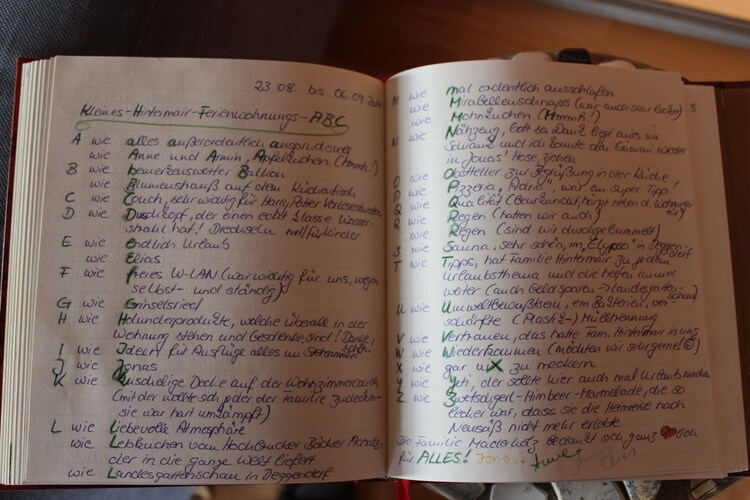 23.08. bis 06.09.2014
Kleines-Hintermair-Ferienwohnungs-ABC
A wie alles außerordentlich anspruchsvoll
wie Anne und Armin, Apfelkuchen (hmmh!)
B wie bemerkenswerter Balkon
wie Blumenstrauß auf dem Küchentisch
C wie Couch, sehr wichtig für Harry Potter Vorlesestunden
D wie Duschkopf, der einen echt klasse Wasser-
strahl hat! Drechseln mit/für Kinder
E wie endlich Urlaub
wie Elias
F wie freies W-LAN (war wichtig für uns, wegen
selbst- und ständig)
G wie Grinselsried
H wie Holunderprodukte, welche überall in der
Wohnung stehen und Geschenke sind! Danke,
I wie Ideen für Ausflüge alles im
J wie Jonas
K wie Kuschelige Decke auf der Wohnzimmercouch
(mit der wollte sich jeder der Familie zudecken-
sie war hart umkämpft)
L wie Liebevolle Atmosphäre
wie Lebkuchen vom Hochbrucker Bäcker
der in die ganze Welt liefert
wie Landesgartenschau in Deggendorf
5
M wie mal ordentlich ausschlafen
wie Mirabellenschnaps (war auch sehr lecker)
wie Mohnkuchen (Hmmmh!)
N wie Nähzeug, Gott sei Dank liegt eines im
Schrank und ich konnte den Gummi wieder
in Jonas' Hose ziehen
O wie Obstteller zur Begrüßung in der Küche
P wie Pizzeria, "Padrè", war ein super Tipp!
Q wie Qualität (überdurchschn.
R wie Regen (hatten wir auch)
wie Regen (sind wir durchgebummelt)
S wie Sauna, sehr schön, im "Elypso" in Deggendorf
T wie Tipps, hat Familie Hintermair zu jedem
Urlaubsthema und die helfen immer
weiter (auch Geld sparen -> Landesgarten-
schau)
U wie Umweltbewußtsein, ein
(Plastik-) Mülltrennung
V wie Vertrauen, das hatte Fam. Hintermair in uns
W wie Wiederkommen (möchten wir sehr gerne!)
X wie gar nix zu meckern
Y wie Yeti, der sollte hier auch mal Urlaub machen
Z wie Zwetschgerl-Himbeer-Marmelade, die so
lecker war, dass sie die Heimreise nach
Neusäß nicht mehr erlebte
Die Familie Maderholz bedankt sich ganz ❤lich
für ALLES! Jonas